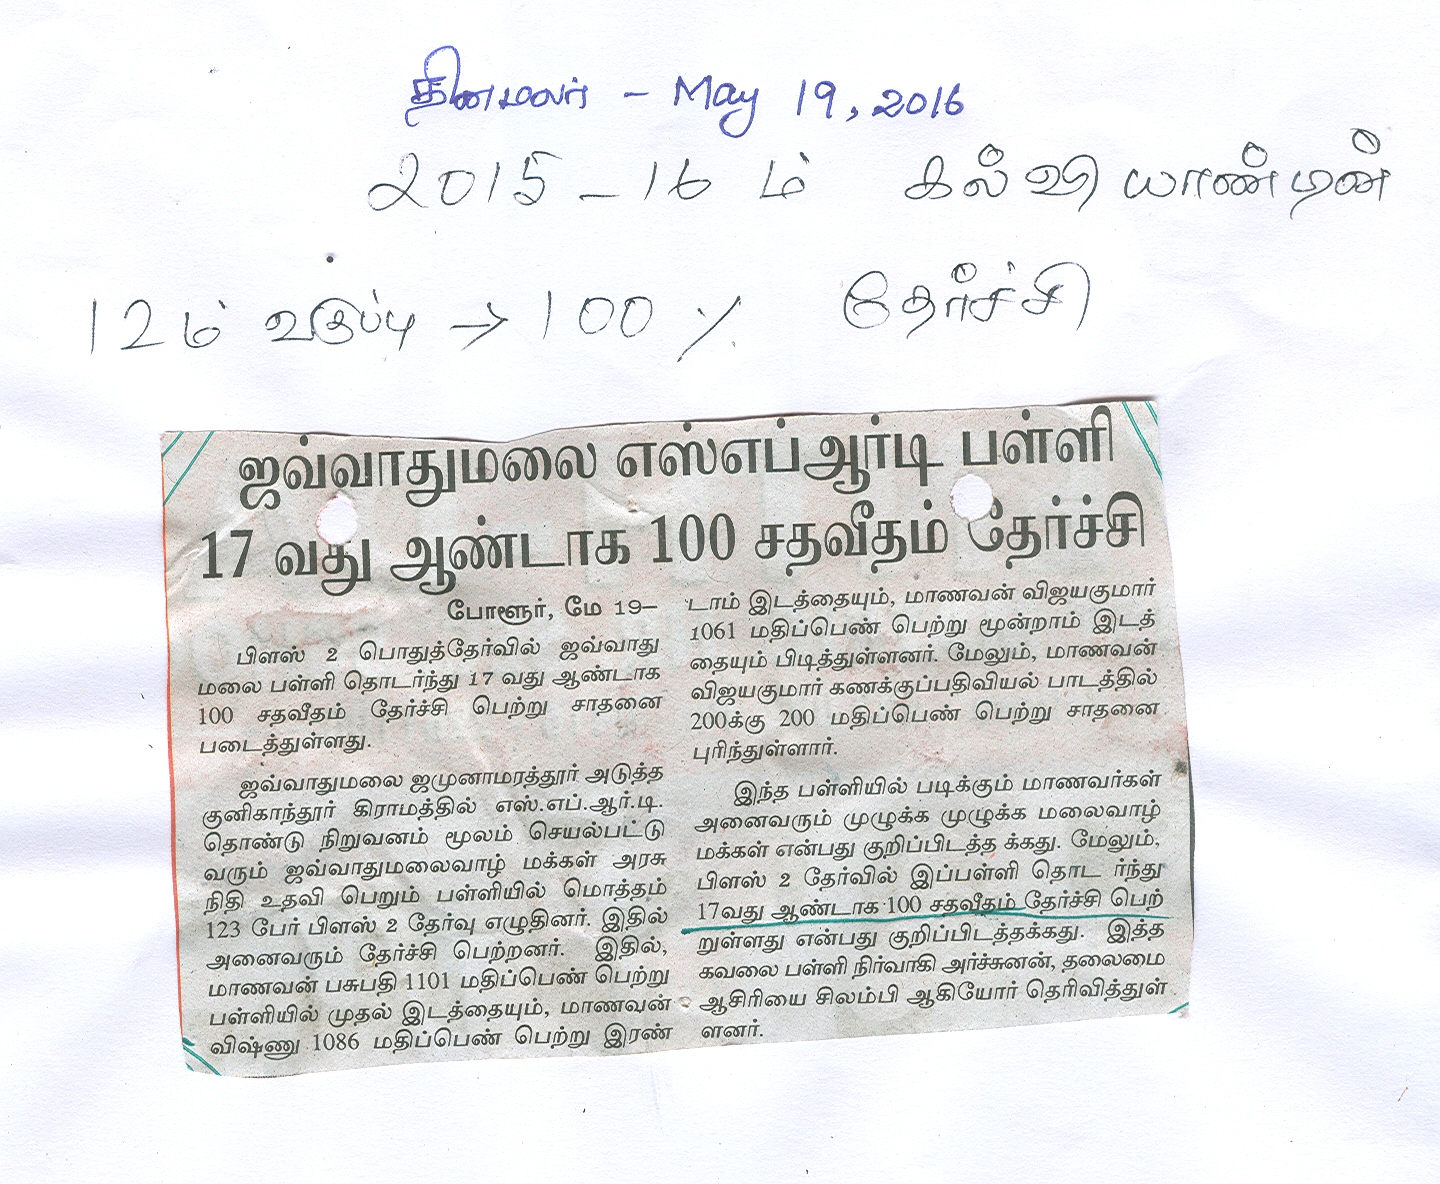 தினமலர் - May 19, 2016
2015 - 16 ம் கல்வியாண்டின்
12ம் வகுப்பு → 100 % தேர்ச்சி
ஜவ்வாதுமலை எஸ்எப்ஆர்டி பள்ளி
17 வது ஆண்டாக 100 சதவீதம் தேர்ச்சி
போளூர், மே 19–
பிளஸ் 2 பொதுத்தேர்வில் ஜவ்வாது
மலை பள்ளி தொடர்ந்து 17 வது ஆண்டாக
100 சதவீதம் தேர்ச்சி பெற்று சாதனை
படைத்துள்ளது.
ஜவ்வாதுமலை ஜமுனாமரத்தூர் அடுத்த
குனிகாந்தூர் கிராமத்தில் எஸ்.எப்.ஆர்.டி.
தொண்டு நிறுவனம் மூலம் செயல்பட்டு
வரும் ஜவ்வாதுமலைவாழ் மக்கள் அரசு
நிதி உதவி பெறும் பள்ளியில் மொத்தம்
123 பேர் பிளஸ் 2 தேர்வு எழுதினர். இதில்
அனைவரும் தேர்ச்சி பெற்றனர். இதில்,
மாணவன் பசுபதி 1101 மதிப்பெண் பெற்று
பள்ளியில் முதல் இடத்தையும், மாணவன்
விஷ்ணு 1086 மதிப்பெண் பெற்று இரண்
டாம் இடத்தையும், மாணவன் விஜயகுமார்
1061 மதிப்பெண் பெற்று மூன்றாம் இடத்
தையும் பிடித்துள்ளனர். மேலும், மாணவன்
விஜயகுமார் கணக்குப்பதிவியல் பாடத்தில்
200க்கு 200 மதிப்பெண் பெற்று சாதனை
புரிந்துள்ளார்.
இந்த பள்ளியில் படிக்கும் மாணவர்கள்
அனைவரும் முழுக்க முழுக்க மலைவாழ்
மக்கள் என்பது குறிப்பிடத்த க்கது. மேலும்,
பிளஸ் 2 தேர்வில் இப்பள்ளி தொட ர்ந்து
17வது ஆண்டாக 100 சதவீதம் தேர்ச்சி பெற்
றுள்ளது என்பது குறிப்பிடத்தக்கது. இத்த
கவலை பள்ளி நிர்வாகி அர்ச்சுனன், தலைமை
ஆசிரியை சிலம்பி ஆகியோர் தெரிவித்துள்
ளனர்.